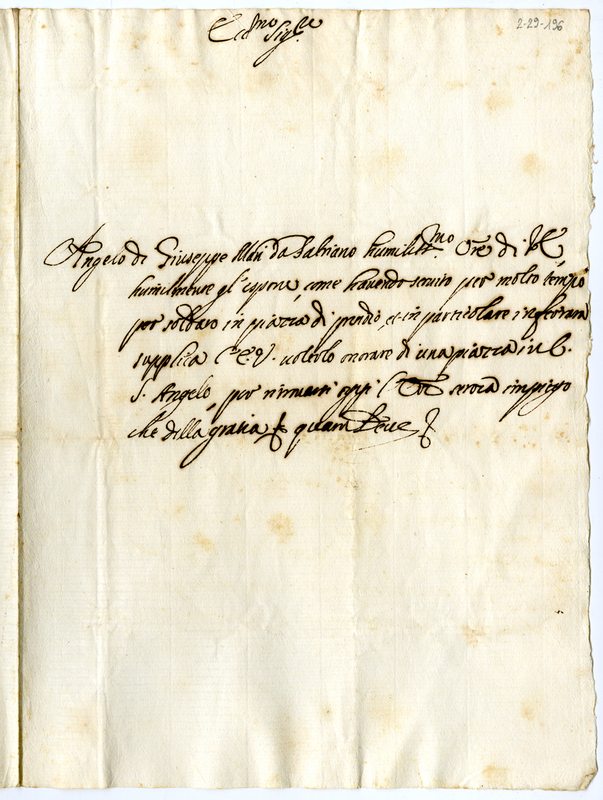 2-29-196
Ecc.mo Sig.re
Angelo di Giuseppe da Fabriano humiliss.mo Ore di V.E.
humilmente gl'espone, come havendo seruito per molto tempo
per soldato in piazza di presidio, et in particolare in ferrara
supplica l'E.V. uolerlo onorare di una piazza in C.
S. Angelo, per senza impiego
che della gratia quam Deus